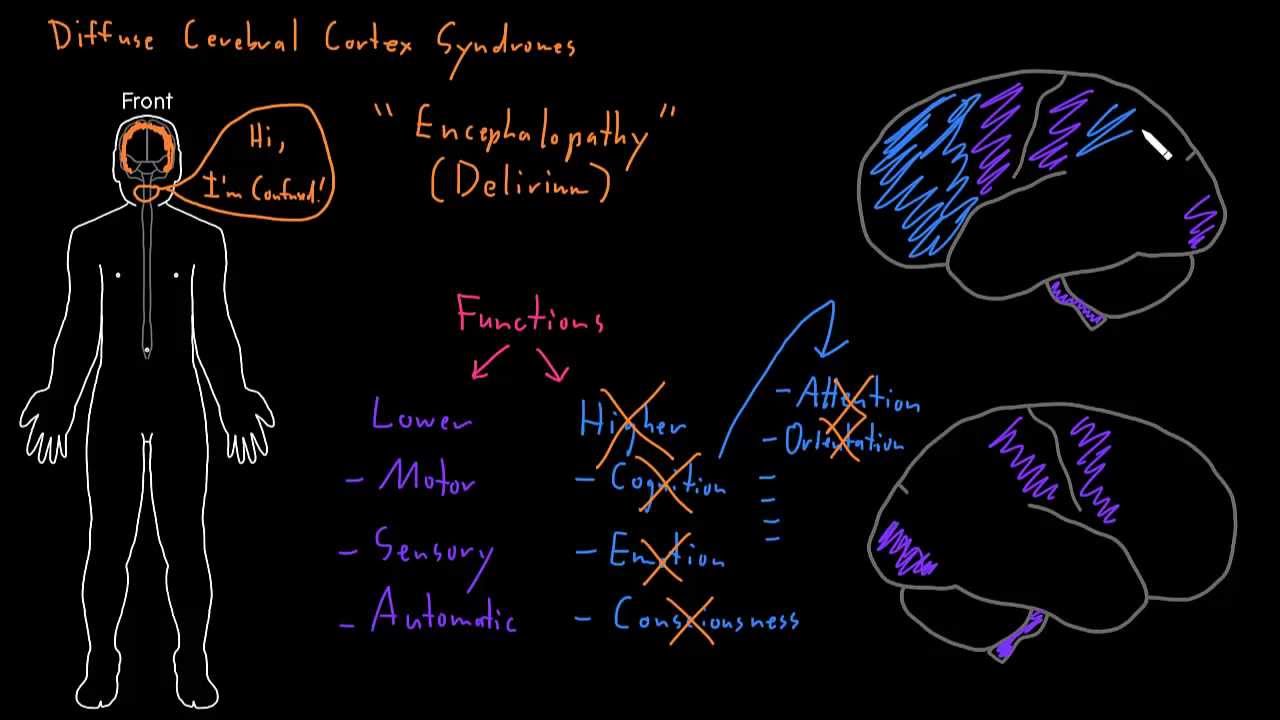 Diffuse Cerebral Cortex Syndromes
Front
Hi,
I'm Confused!
"Encephalopathy"
(Delirium)
Functions
Lower
- Motor
- Sensory
- Automatic
Higher
- Cognition
- Emotion
- Consciousness
- Attention
- Orientation
-
-
-
-